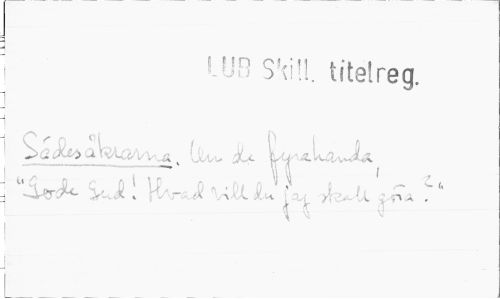 LUB Skill. titelreg.
Sädesåkrarna. Un de fyrahanda,
"Gode Gud! Hvad vill du jag skall göra?"